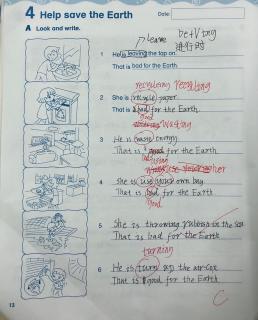 4 Help save the Earth
Date:
A Look and write.
leave be+Ving
进行时
1 He is leaving the tap on.
That is bad for the Earth.
recycleing recycling
2 She is recycle paper.
That is bad for the Earth.
good
wasting
3 He is waste energy.
That is good for the Earth.
bad using
her
4 She is use your own bag.
That is bad for the Earth.
good
5 She is throwing rubbish in the sea
That is bad for the Earth
turning
6 He is turn up the air-con
That is good for the Earth.
C
12